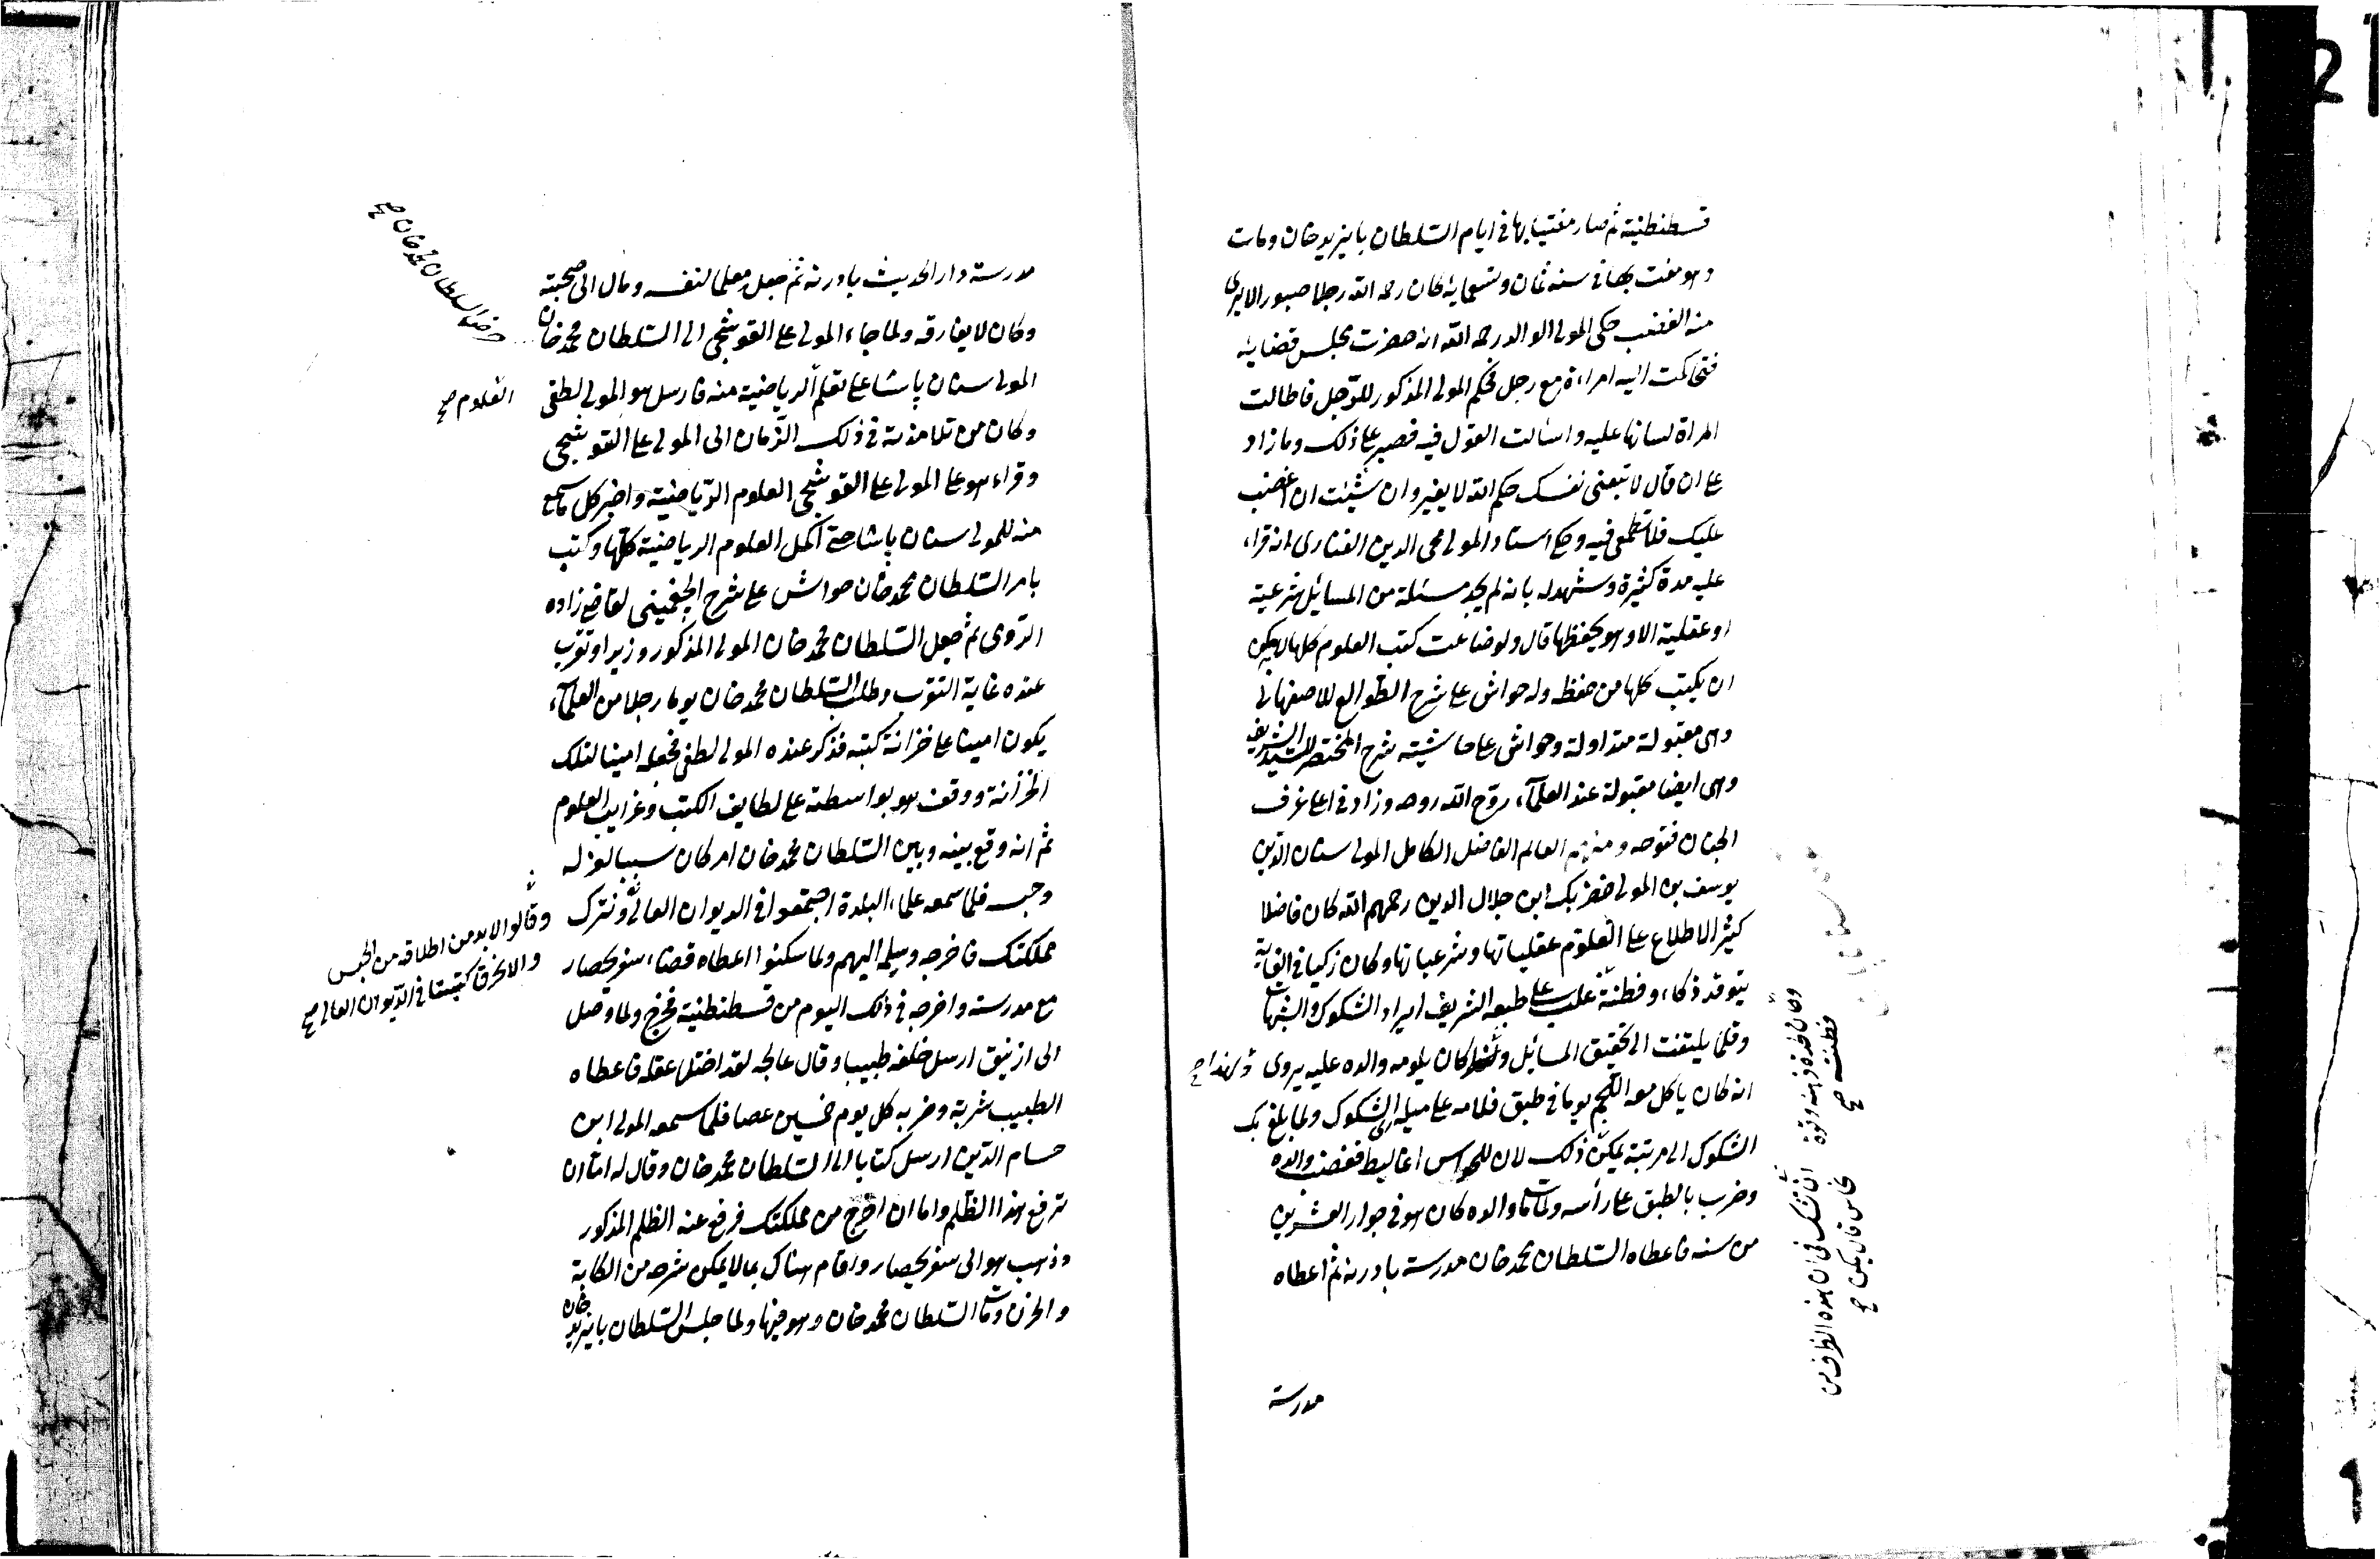 قسطنطنية ثم صار مفتيا بها في ايام السلطان بايزيد خان ومات
وهو مفت بها في سنة ثمان وتسعماية كان رحمه الله رجلا صبورا لا يرى
منه الغضب حكى المولى الوالد رحمه الله انه حضرت مجلس قضايه
فتحاكمت اليه امراءة مع رجل فحكم المولى المذكور للرجل فاطالت
المراة لسانها عليه واسائت القول فيه فصبر على ذلك وما زاد
على ان قال لا تتعبى نفسك حكم الله لا يغير وان شئت ان اغضب
عليك فلا تطمعى فيه وحكى استاد المولى محى الدين الفنارى انه قراء
عليه مدة كثيرة وشهد له بانه لم يجد مسئلة من المسائل شرعية
او عقلية الا وهو يحفظها قال ولو ضاعت كتب العلوم كلها لامكن
ان يكتب كلها من حفظه وله حواش على شرح الطوالع للاصفهانى
وهى مقبولة متداولة وحواش على حاشية شرح المختصر للسيد الشريف
وهى ايضا مقبولة عند العلماء روح الله روحه وزاد فى اعلى غرف
الجنان فتوحه ومنهم العالم الفاضل الكامل المولى سنان الدين
يوسف بن المولى خضر بك ابن جلال الدين رحمهم الله كان فاضلا
كثير الاطلاع على العلوم عقلياتها وشرعياتها وكان زكيا فى الغاية
يتوقد ذكاء وفطنة غلب على طبعه الشريف ايراد الشكوك والشبهات
وقلما يلتفت الى تحقيق المسائل وكان يلومه والده عليه يروى
ولهذا صح
انه كان ياكل معه اللحم يوما فى طبق فلامه على ميله الى الشكوك ولما بلغ بك
الشكوك الى مرتبة يمكن ذلك لان للحواس اغاليط فغضب والده
وضرب بالطبق على رأسه ولما مات والده كان هو فى جوار العشرين
من سنه فاعطاه السلطان محمد خان مدرسة بادرنه ثم اعطاه
وكان لحدة ذهنه وقوة
فطنته صح
ان تشك فى ان هذه الظرف من
نحاس قال يمكن صح
مدرسة
مدرسة دار الحديث بادرنه ثم جعله معلما لنفسه ومال الى صحبته
وكان لا يفارقه ولما جاء المولى على القوشجى الى السلطان محمد خان
حرض السلطان محمد خان صح
المولى سنان باشا على تعلم الرياضية منه فارسل هو المولى لطفى
العلوم صح
وكان من تلامذته فى ذلك الزمان الى المولى على القوشجى
وقراء هو على المولى على القوشجى العلوم الرياضية واخبر كل ما سمع
منه للمولى سنان باشا حتى اكمل العلوم الرياضية كلها وكتب
بامر السلطان محمد خان حواش على شرح الجغمينى لقاضى زاده
الرومى ثم جعل السلطان محمد خان المولى المذكور وزيرا وتقرب
عنده غاية التقرب وطلب السلطان محمد خان يوما رجلا من العلماء
يكون امينا على خزانة كتبه فذكر عنده المولى لطفى فجعله امينا لتلك
الخزانة ووقف هو بواسطته على لطايف الكتب وغرايب العلوم
ثم انه وقع بينه وبين السلطان محمد خان امر كان سببا لعزله
وحبسه فلما سمعه علماء البلدة اجتمعوا فى الديوان العالى ونترك
وقالوا لا بد من اطلاقه من الحبس
والا نحرق كتبنا فى الديوان العالى صح
مملكتك فاخرجه وسلمه اليهم ولما سكنوا اعطاه قضاء سفريحصار
مع مدرسته واخرجه فى ذلك اليوم من قسطنطنية فخرج ولما وصل
الى ازنيق ارسل خلفه طبيبا وقال عالجه لقد اختل عقله فاعطاه
الطبيب شربة وضربه كل يوم خمسين عصا فلما سمعه المولى ابن
حسام الدين ارسل كتابا الى السلطان محمد خان وقال له اما ان
ترفع هذا الظلم واما ان اخرج من مملكتك فرفع عنه الظلم المذكور
وذهب هو الى سفريحصار واقام هناك بما لا يمكن شرحه من الكابة
والحزن ومات السلطان محمد خان وهو فيها ولما جلس السلطان بايزيد خان